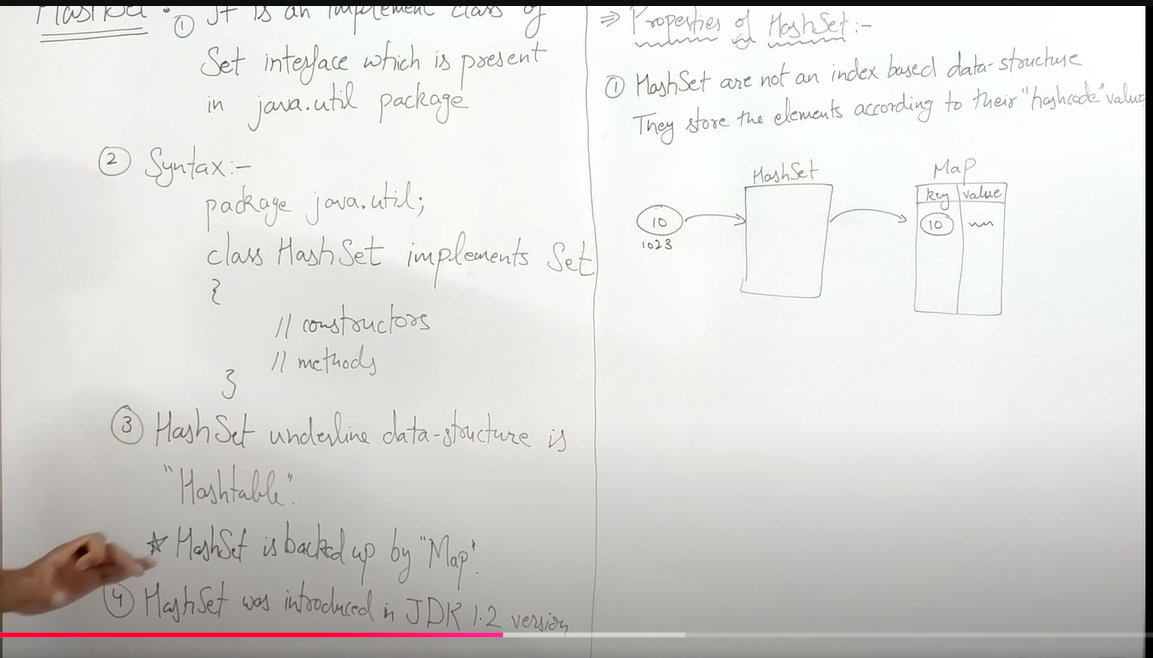 HashSet :- ① It is an implement class of
Set interface which is present
in java.util package
② Syntax:-
package java.util;
class HashSet implements Set
{
// constructors
// methods
}
③ HashSet underline data-structure is
"Hashtable".
☆ HashSet is backed up by "Map".
④ HashSet was introduced in JDK 1.2 version
⇒ Properties of HashSet:-
① HashSet are not an index based data-structure
They store the elements according to their "hashcode" value
HashSet
Map
key value
10
1023
10